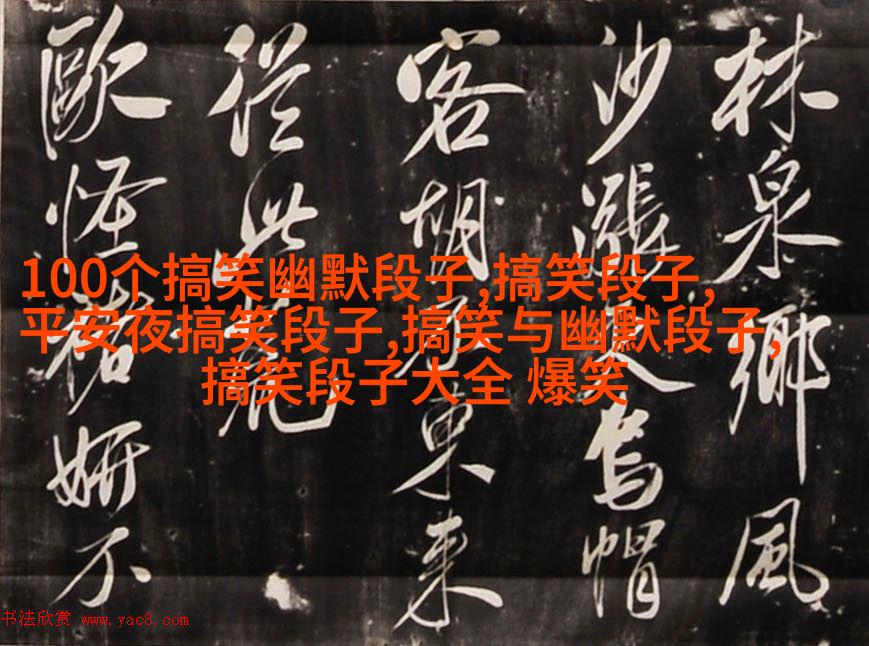 林泉鄉風
沙漲烏帽
客胡東來
從此
歐怪褚妍不
100个搞笑幽默段子,搞笑段子,
平安夜搞笑段子,搞笑与幽默段子,
搞笑段子大全 爆笑
书法欣赏 www.yac8.com